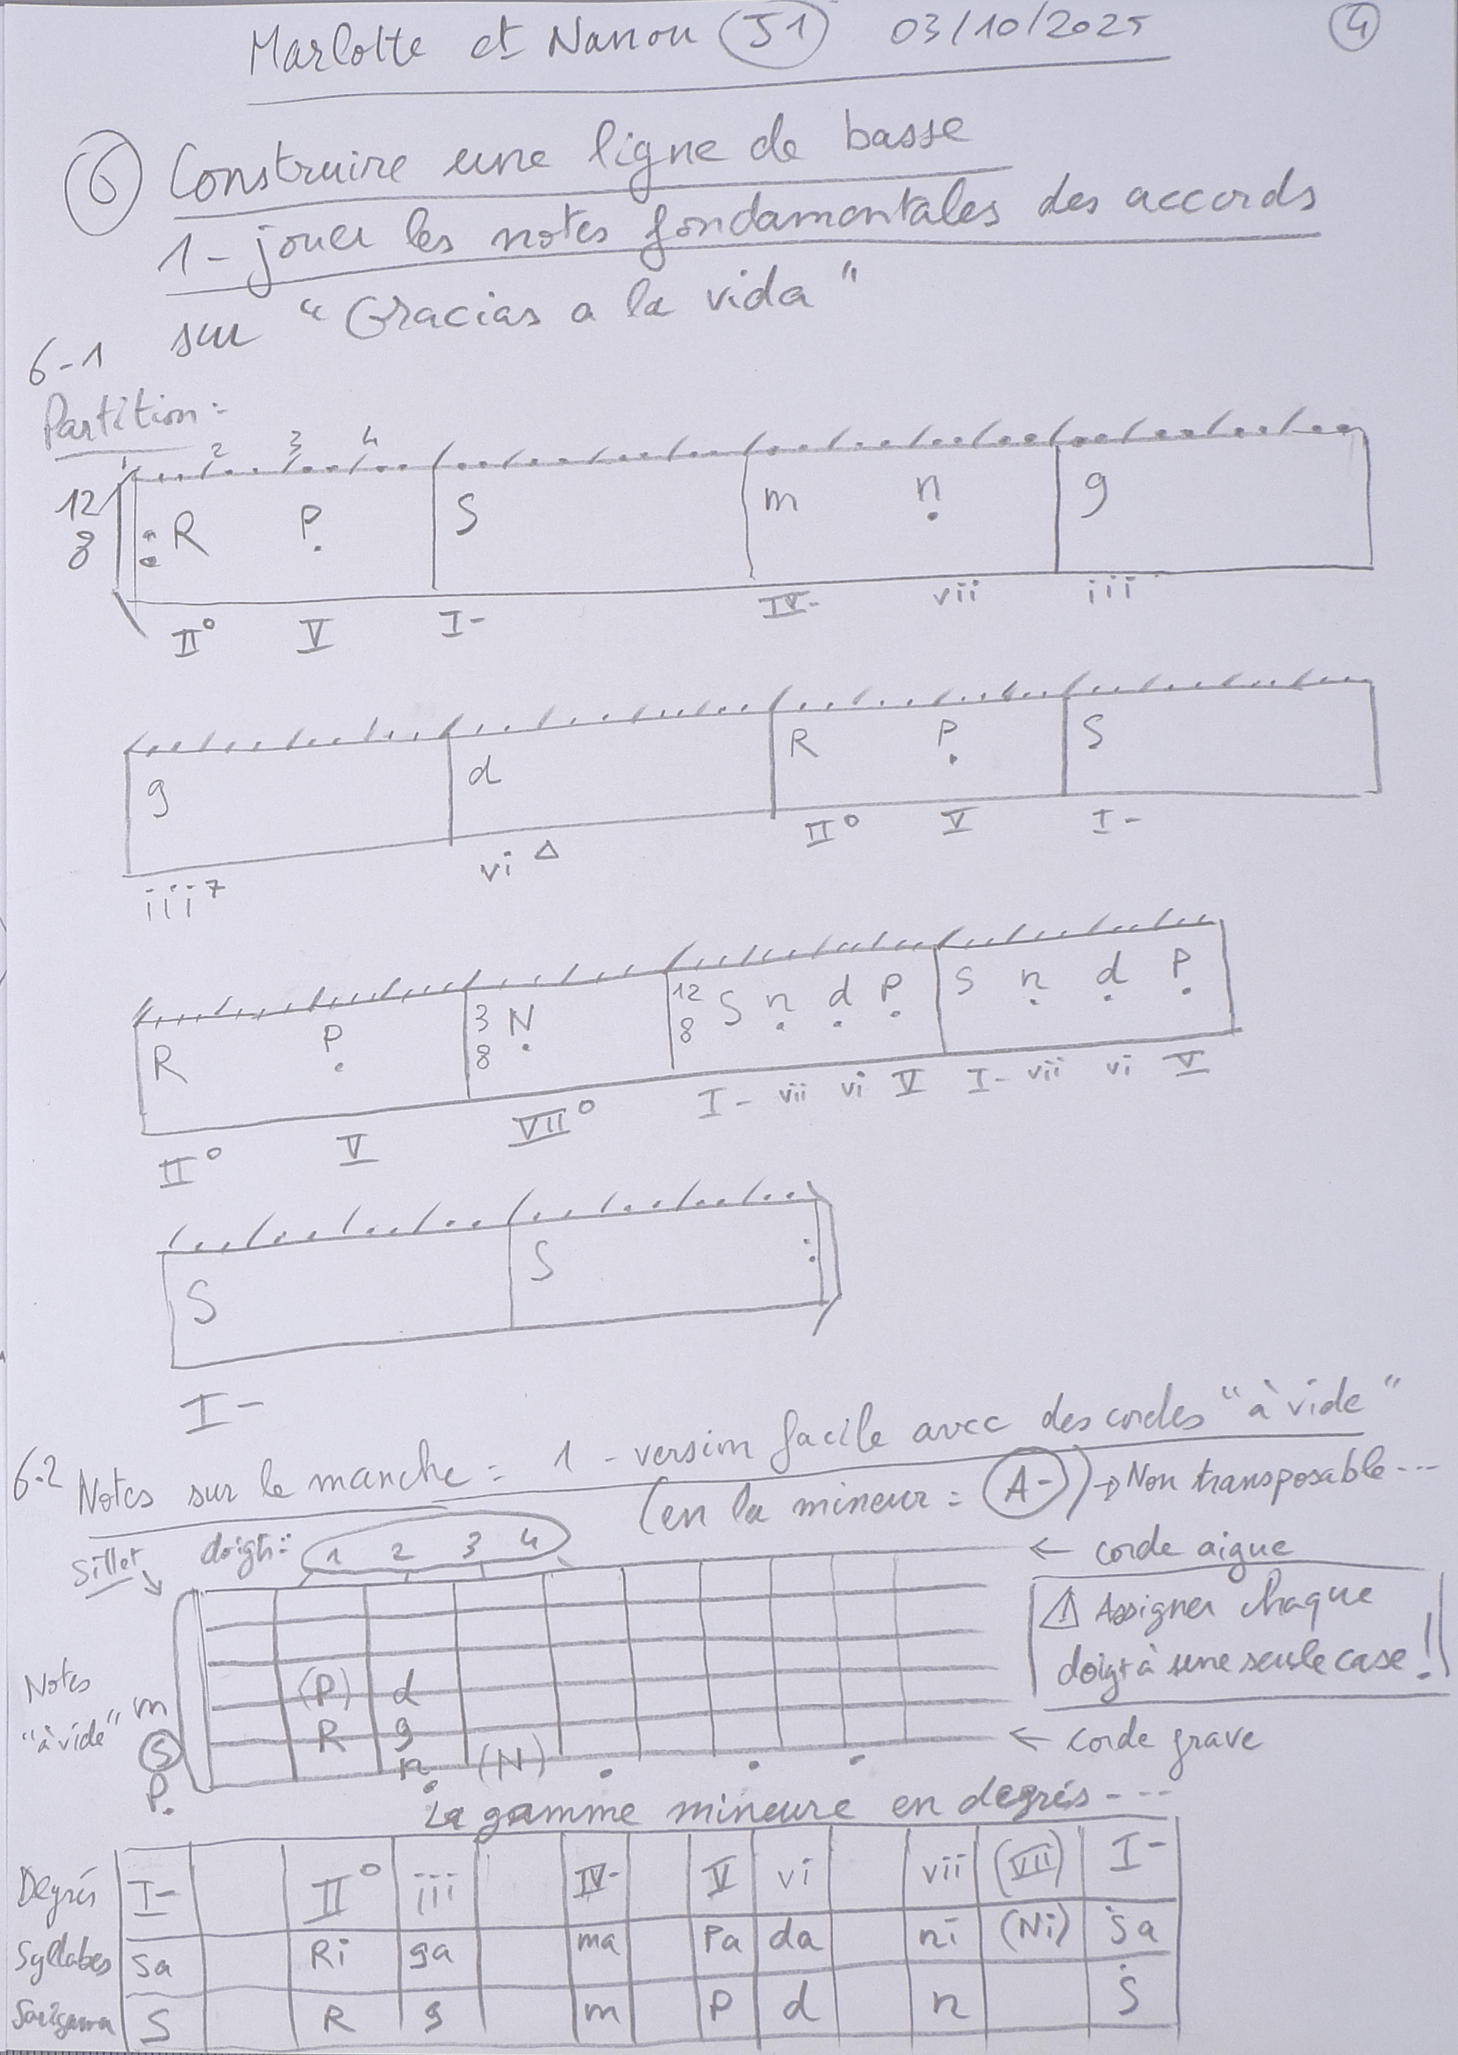 Marlotte et Nanou (J1) 03/10/2025 (4)
(6) Construire une ligne de basse
1 - jouer les notes fondamentales des accords
sur "Gracias a la vida"
6-1
Partition :
1 2 3 4
12/8 : R P̣ S m ṇ g
II° V I- IV- vii iii
g d R P̣ S
iii7 vi Δ II° V I-
R P̣ 3/8 Ṇ 12/8 S ṇ ḍ P̣ S ṇ ḍ P̣
II° V VII° I- vii vi V I- vii vi V
S S :
I-
6-2 Notes sur le manche : 1 - version facile avec des cordes "à vide"
(en la mineur : (A-)) → Non transposable ...
Sillet doigts : 1 2 3 4
← corde aigue
⚠ Assigner chaque
doigt à une seule case !!
Notes
"à vide"
m (P) d
(S) R g
P̣ ṇ (N)
← corde grave
La gamme mineure en degrés ...
Degrés I- II° iii IV- V vi vii (VII) I-
Syllabes Sa Ri ga ma Pa da ni (Ni) Ṡa
Sargama S R g m P d n Ṡ